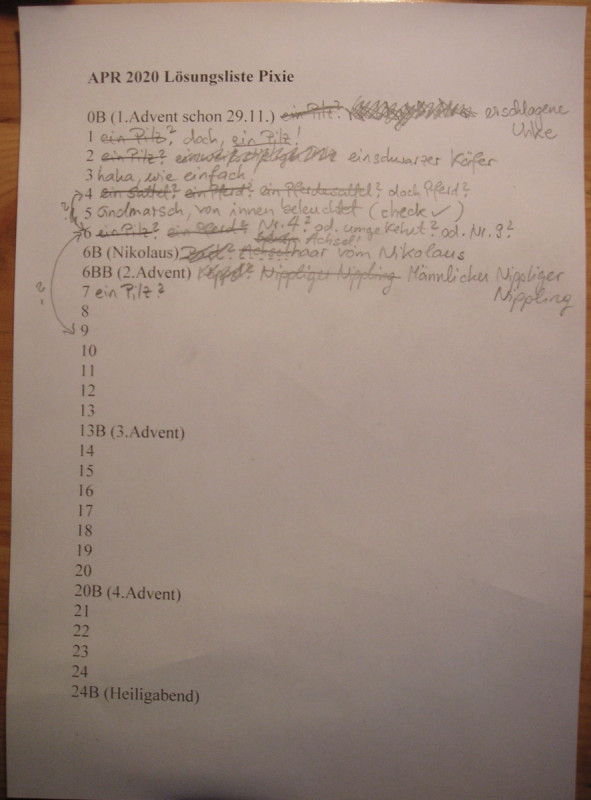 APR 2020 Lösungsliste Pixie
0B (1.Advent schon 29.11.) ein Pilz? erschlagene
Unke
1 ein Pilz? doch, ein Pilz!
2 ein Pilz? ein schwarzer Käfer
3 haha, wie einfach!
4 ein Sattel? ein Pferd? ein Pferdesattel? doch Pferd?
5 Grindmatsch, von innen beleuchtet (check ✓)
6 ein Pilz? ein Pferd? Nr. 4? od. umgekehrt? od. Nr. 9?
Achsel!
6B (Nikolaus) haar vom Nikolaus
6BB (2.Advent) Nippliger Nippling Männlicher Nippliger
Nippling
7 ein Pilz?
8
9
10
11
12
13
13B (3.Advent)
14
15
16
17
18
19
20
20B (4.Advent)
21
22
23
24
24B (Heiligabend)